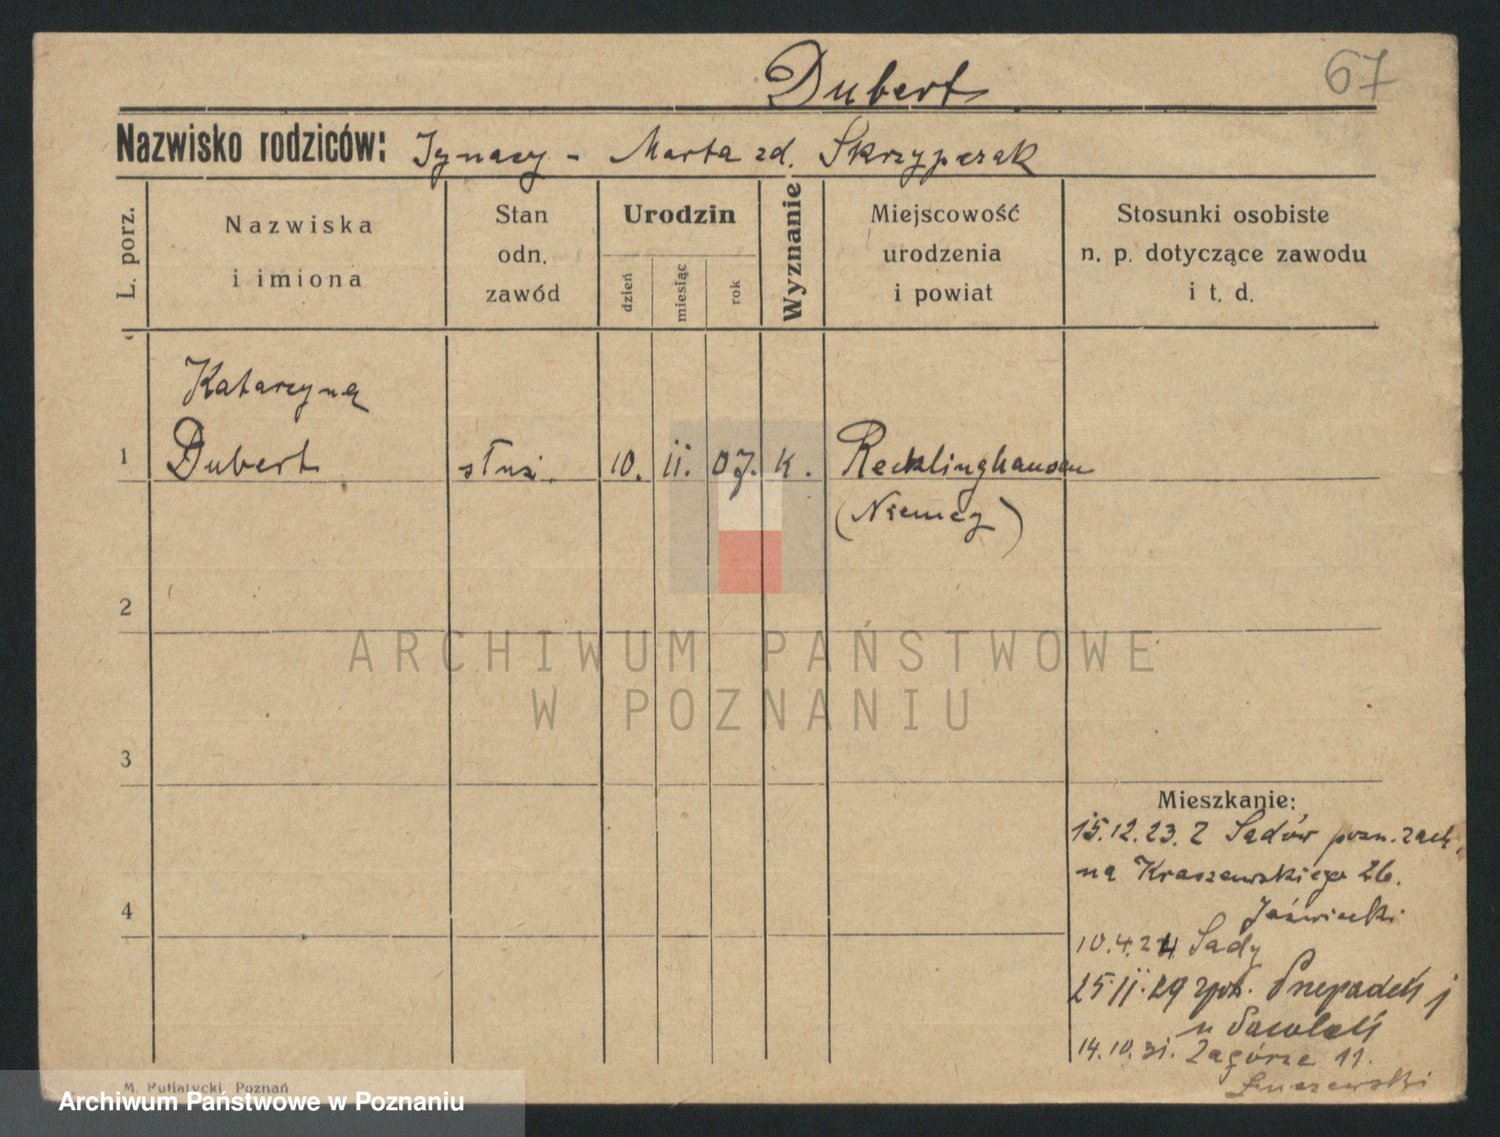 Dubert
67
Nazwisko rodziców: Ignacy - Marta zd. Skrzypczak
L. porz.
Nazwiska
i imiona
Stan
odn.
zawód
Urodzin
dzień
miesiąc
rok
Wyznanie
Miejscowość
urodzenia
i powiat
Stosunki osobiste
n. p. dotyczące zawodu
i t. d.
Katarzyna
1 Dubert służ. 10. 11. 07. k. Recklinghausen
(Niemcy)
2
3
4
Mieszkanie:
15.12.23. Z Sadów pozn. zach.
na Kraszewskiego 26.
10.4.24 Sady
25.11.29
14.10.31. Zagórze 11.
M. Putiatycki, Poznań
ARCHIWUM PAŃSTWOWE
W POZNANIU
Archiwum Państwowe w Poznaniu